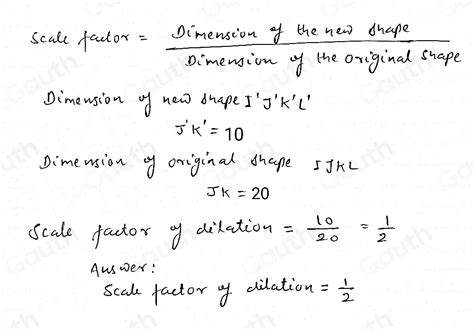 Scale factor = Dimension of the new shape / Dimension of the original shape
Dimension of new shape I'J'K'L'
J'K' = 10
Dimension of original shape IJKL
JK = 20
Scale factor of dilation = 10/20 = 1/2
Answer:
Scale factor of dilation = 1/2